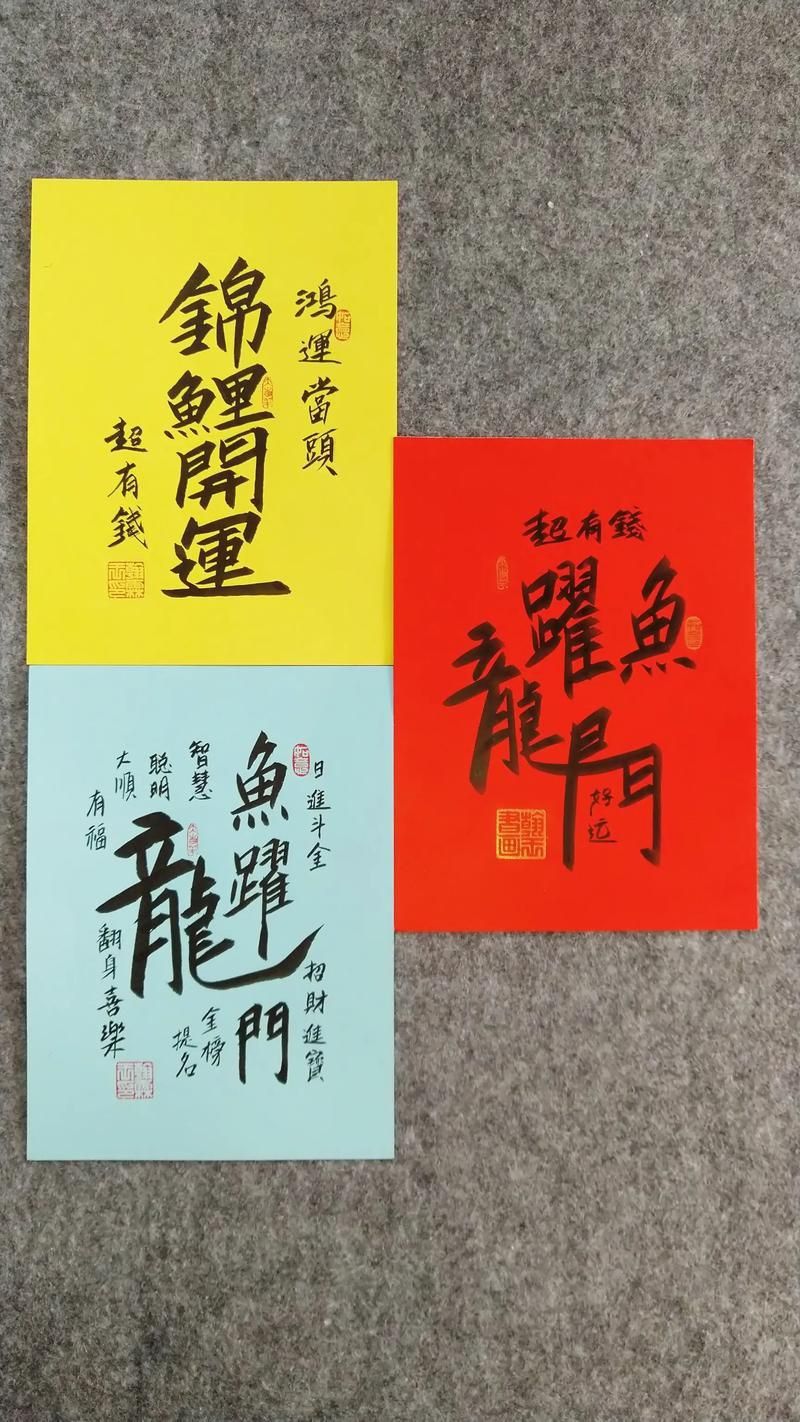 鴻運當頭
錦鯉開運
超有錢
超有錢
魚躍
龍門
好运
日進斗金
招財進寶
魚躍
龍門
智慧
聪明
大順
有福
金榜
提名
翻身喜樂